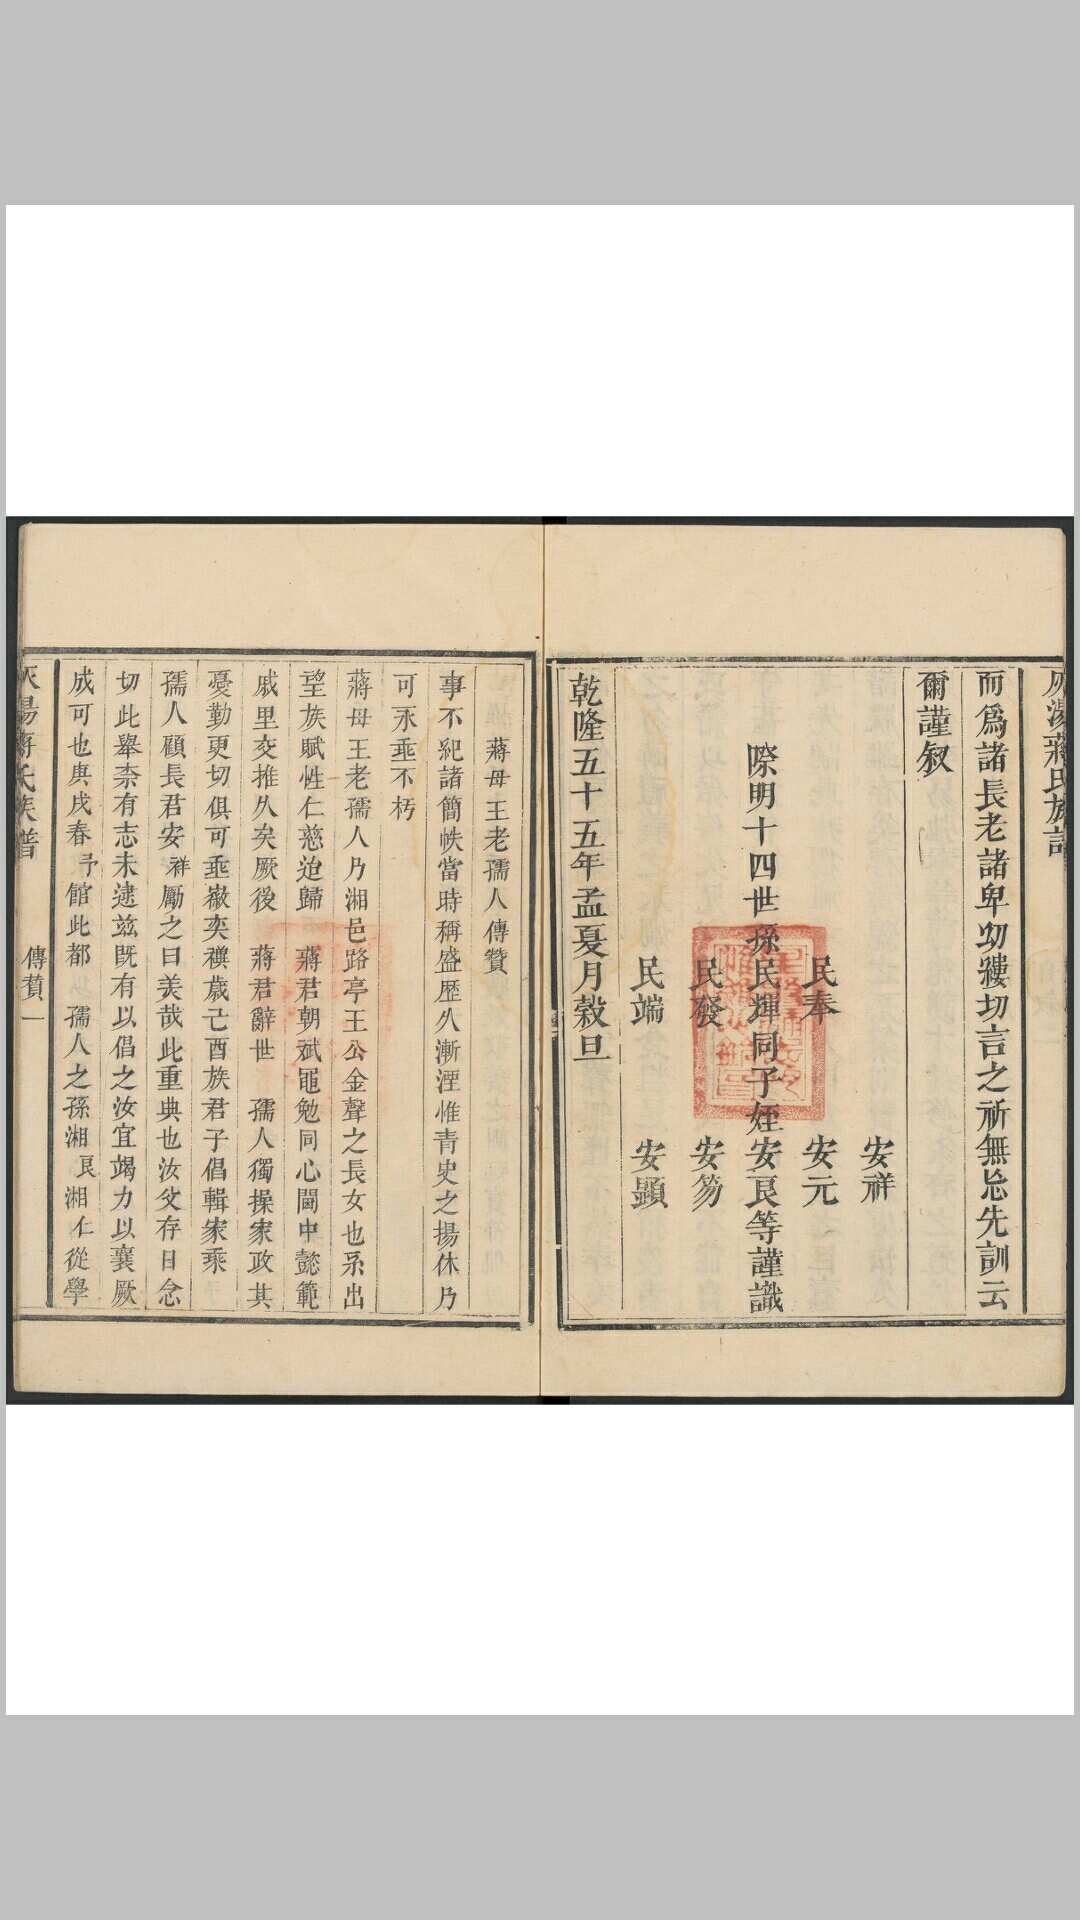 灰湯蔣氏族譜
而爲諸長老諸卑幼縷切言之祈無忘先訓云
爾謹叙
安祥
民奉　安元
際明十四世孫民輝同子姪安良等謹識
民發　安笏
民端　安顯
乾隆五十五年孟夏月穀旦
蔣母王老孺人傳贊
事不紀諸簡帙當時稱盛歷久漸湮惟青史之揚休乃
可永垂不朽
蔣母王老孺人乃湘邑路亭王公金聲之長女也系出
望族賦性仁慈迨歸　蔣君朝斌黽勉同心閫中懿範
戚里交推久矣厥後　蔣君辭世　孺人獨操家政其
憂勤更切俱可垂徽奕禩歲己酉族君子倡輯家乘
孺人顧長君安祥勵之曰美哉此重典也汝父存日念
切此舉柰有志未逮茲既有以倡之汝宜竭力以襄厥
成可也庚戌春予館此都　孺人之孫湘良湘仁從學
灰湯蔣氏族譜　傳贊　一